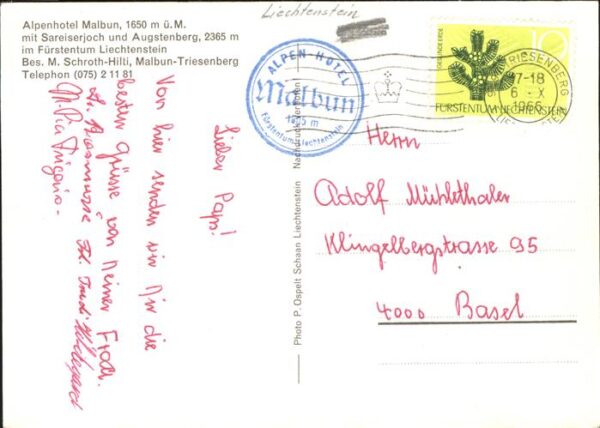 Alpenhotel Malbun, 1650 m ü. M.
mit Sareiserjoch und Augstenberg, 2365 m
im Fürstentum Liechtenstein
Bes. M. Schroth-Hilti, Malbun-Triesenberg
Telephon (075) 2 11 81
Liechtenstein
ALPEN-HOTEL
Malbun
Fürstentum Liechtenstein
GESUNDE ERDE
10
FÜRSTENTUM LIECHTENSTEIN
TRIESENBERG
17-18
6. X
1966
Lieber Papi!
Von hier senden wir Dir die
besten Grüsse von Deiner Frau.
Hildegard
Photo P. Ospelt Schaan Liechtenstein Nachdruck verboten
Herrn
Adolf Mühlethaler
Klingelbergstrasse 95
4000 Basel